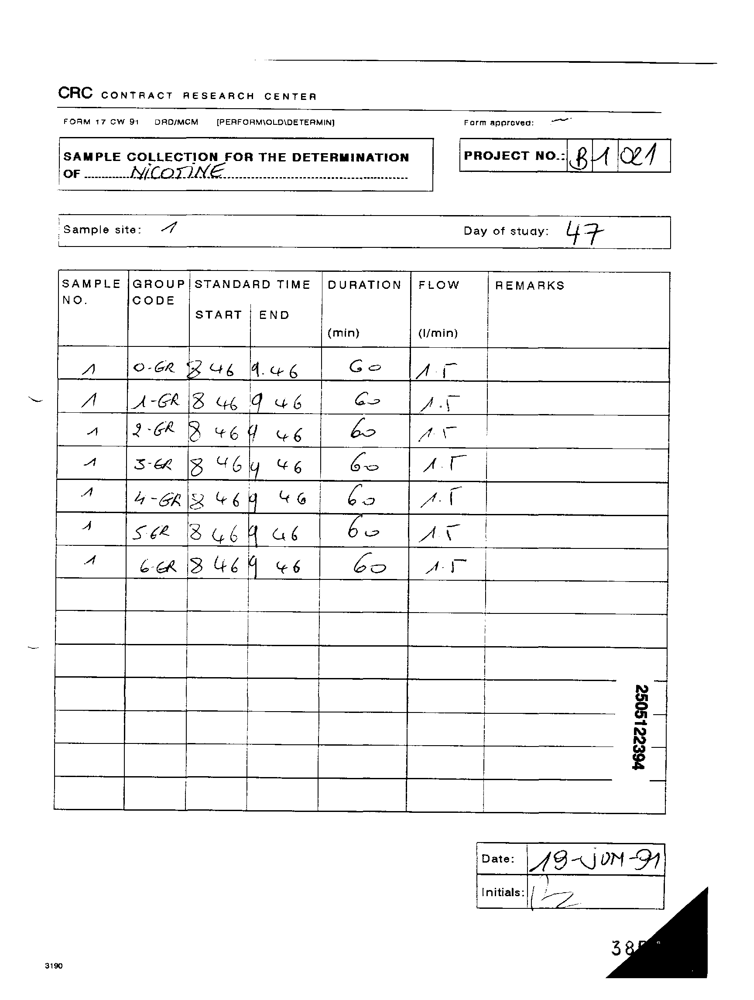 CRC CONTRACT RESEARCH CENTER
FORM 17 CW 91 DRD/MCM [PERFORM\OLD\DETERMIN] Form approved:
SAMPLE COLLECTION FOR THE DETERMINATION
OF NiCOTINE
PROJECT NO.: B1 021
Sample site: 1 Day of study: 47
SAMPLE NO. GROUP CODE STANDARD TIME START END DURATION (min) FLOW (l/min) REMARKS
1 0-GR 8 46 9.46 60 1.5
1 1-GR 8 46 9 46 60 1.5
1 2-GR 8 46 9 46 60 1.5
1 3-GR 8 46 9 46 60 1.5
1 4-GR 8 46 9 46 60 1.5
1 5GR 8 46 9 46 60 1.5
1 6-GR 8 46 9 46 60 1.5
2505122394
Date: 19-JUN-91
Initials:
38
3190